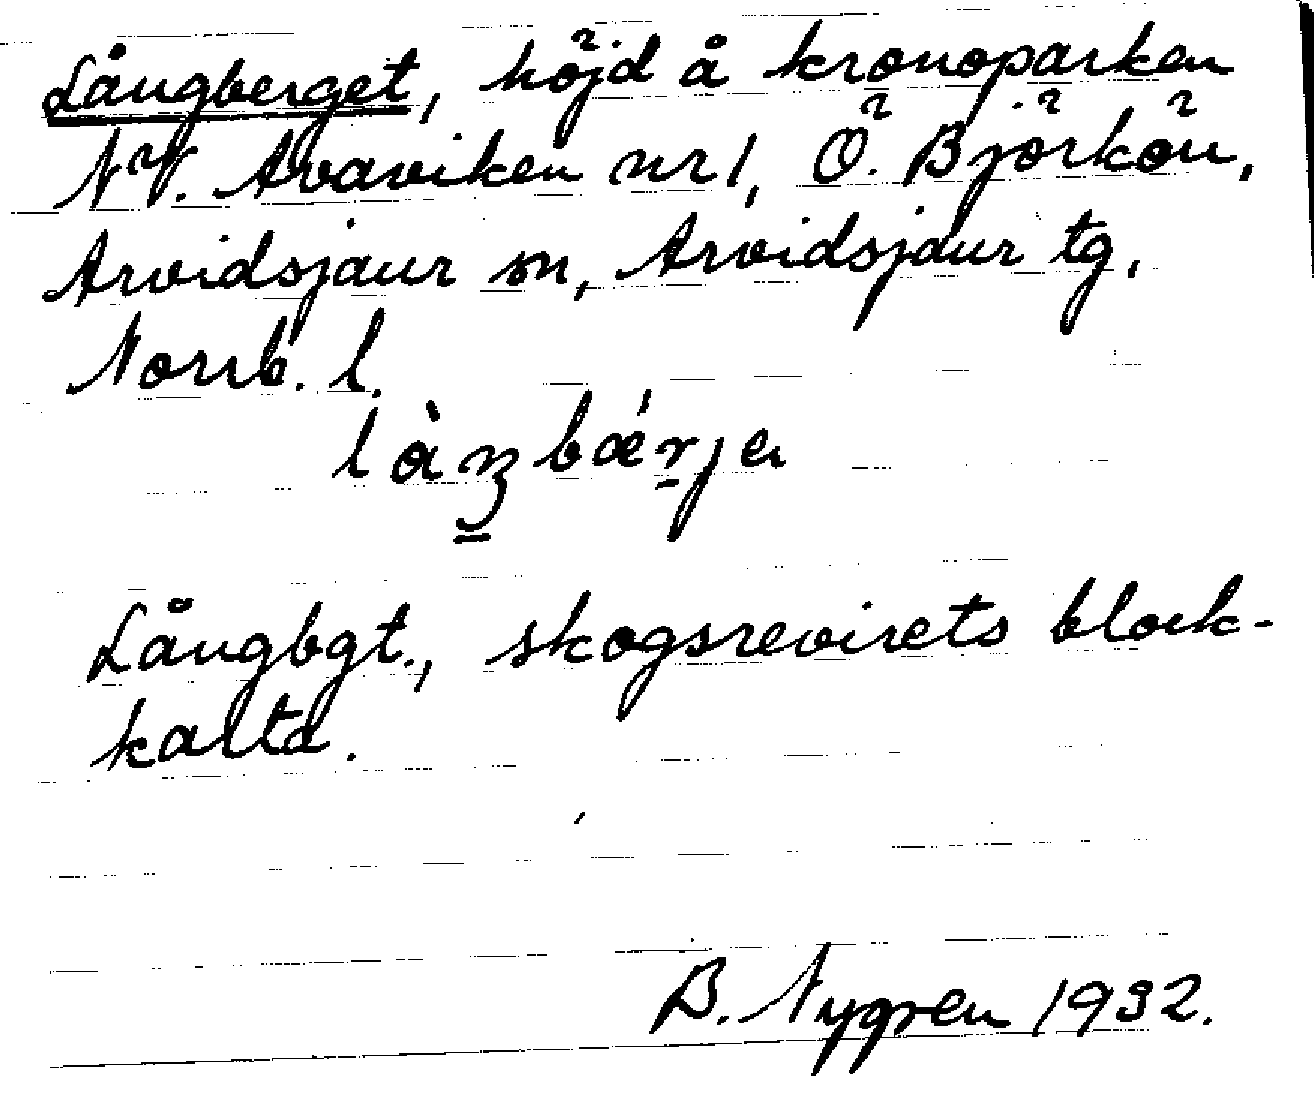 Långberget, höjd å kronoparken
NV. Avaviken nr 1, Ö. Björkön,
Arvidsjaur sn, Arvidsjaur tg,
Norrb. l.
Långbgt., skogsrevirets block-
karta.
B. Nygren 1932.